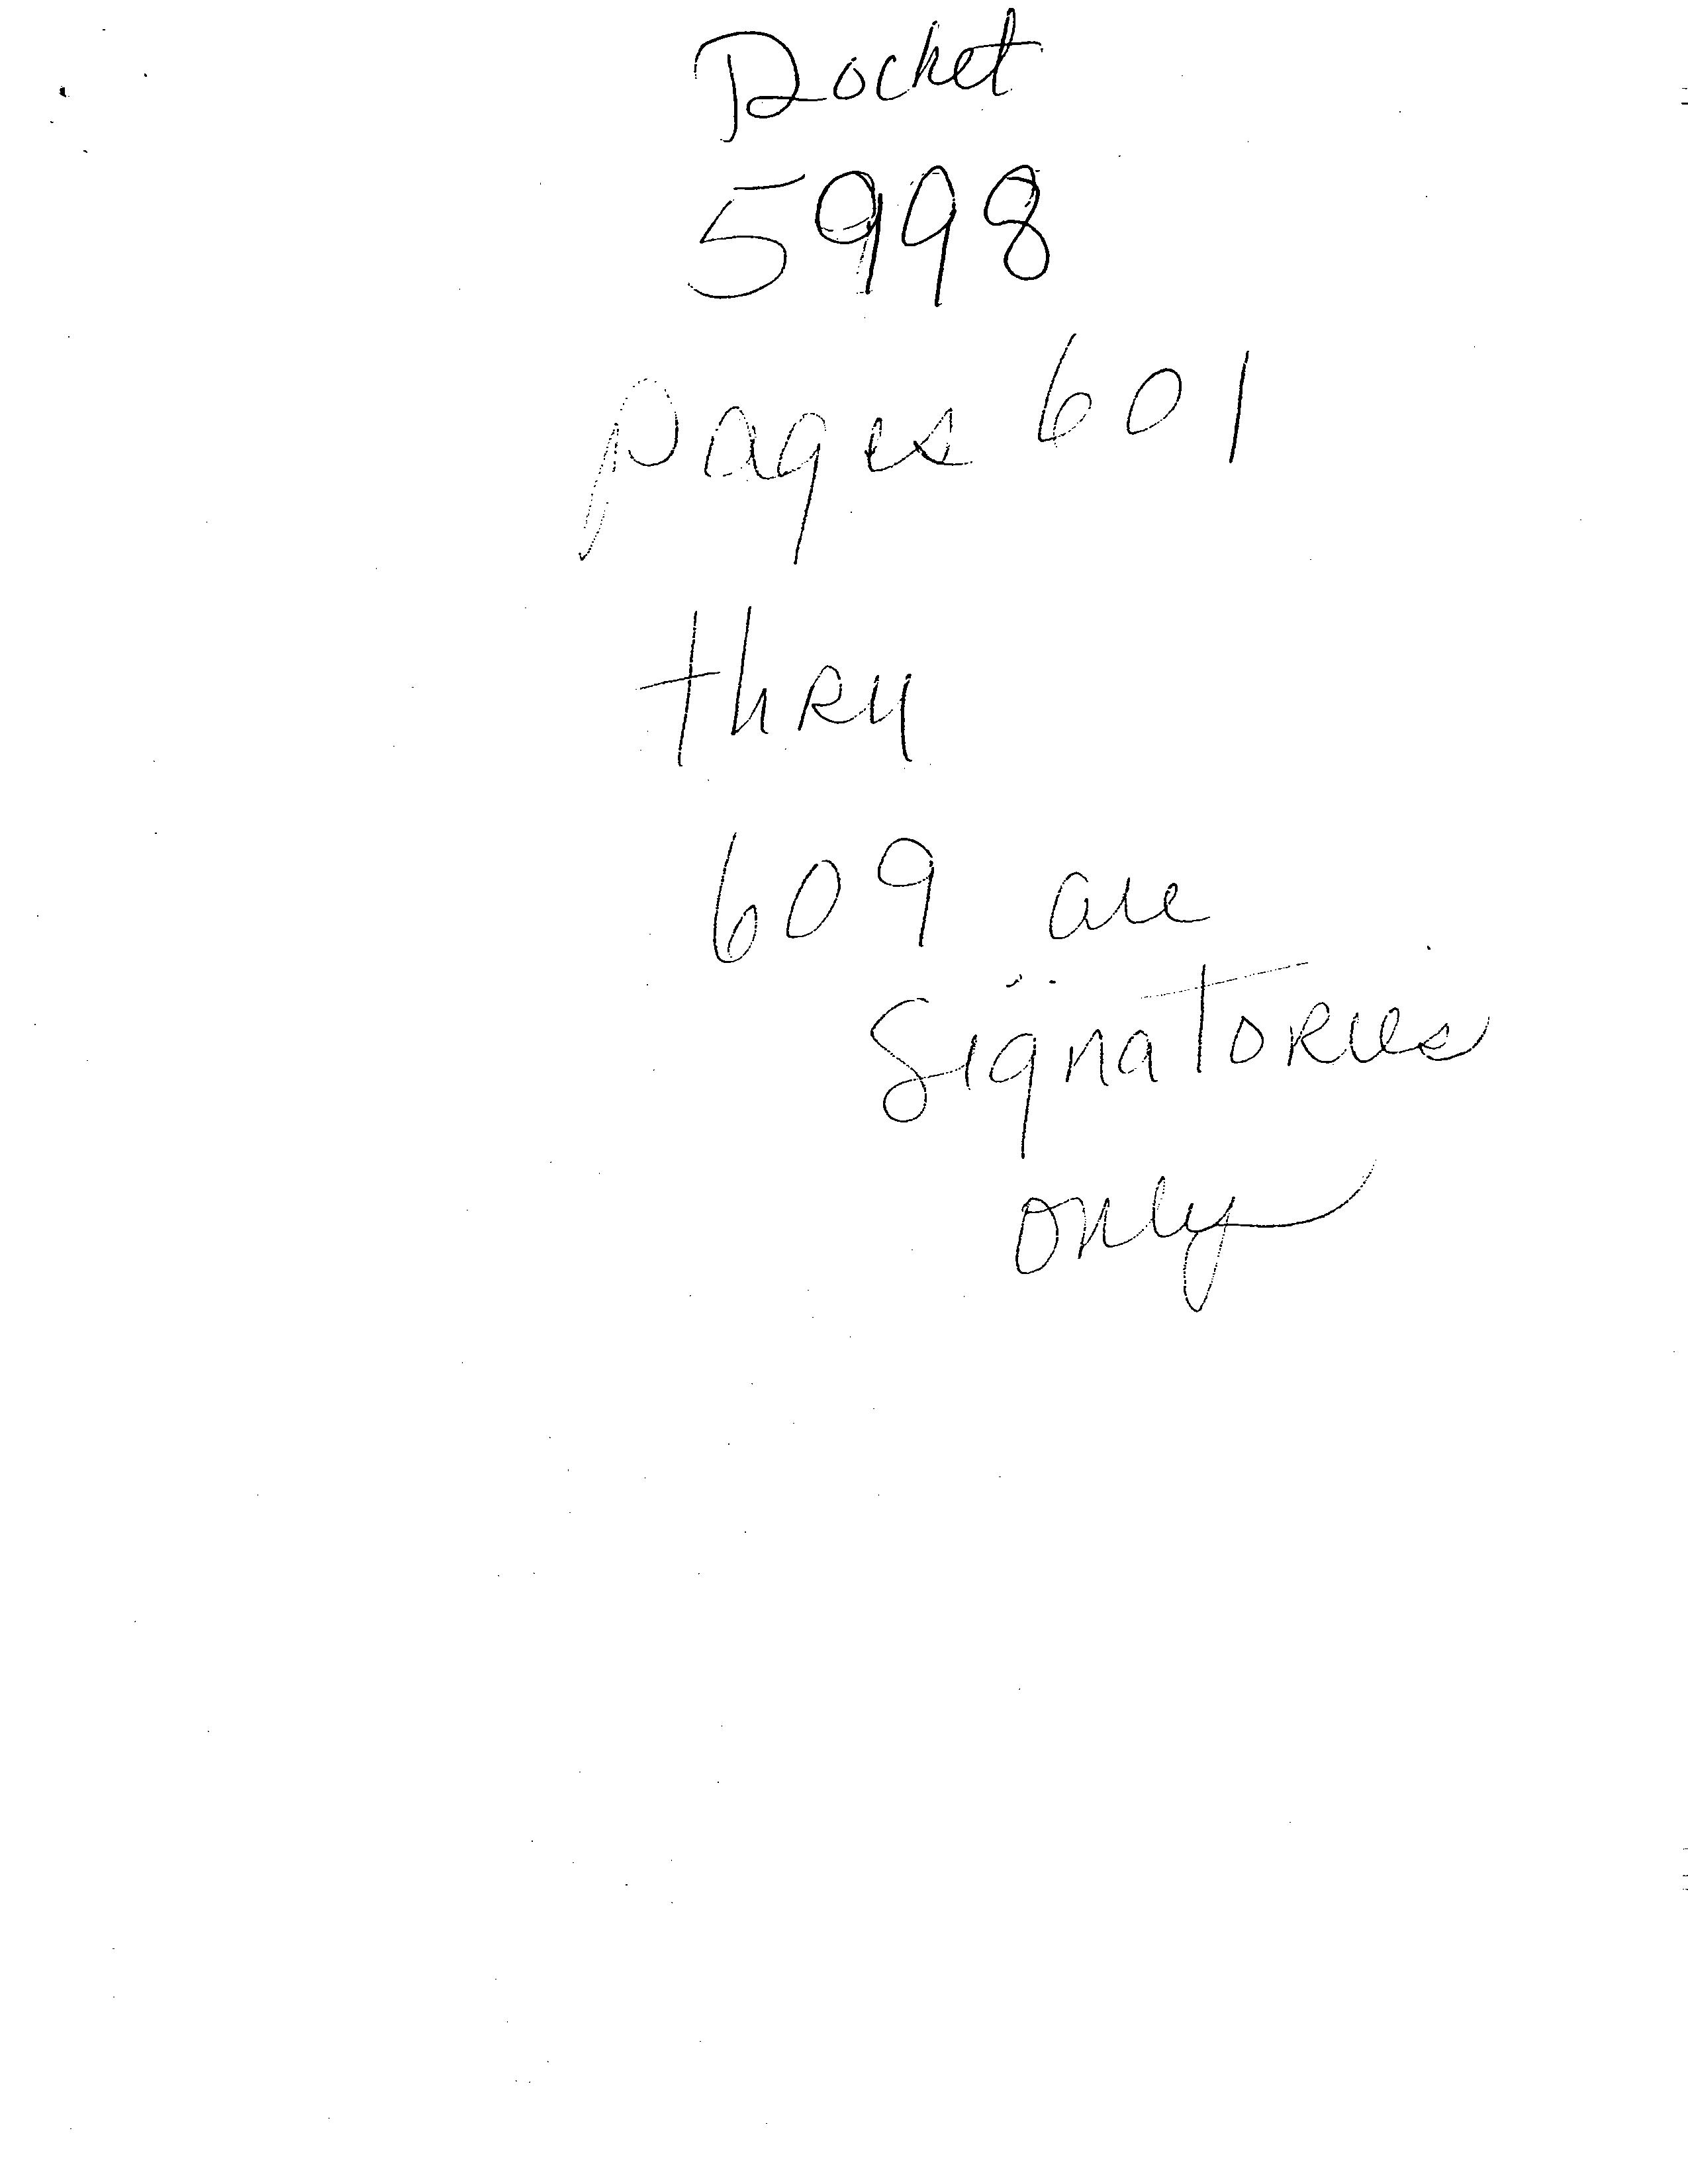 Docket
5998
pages 601
thru
609 are
Signatories
only